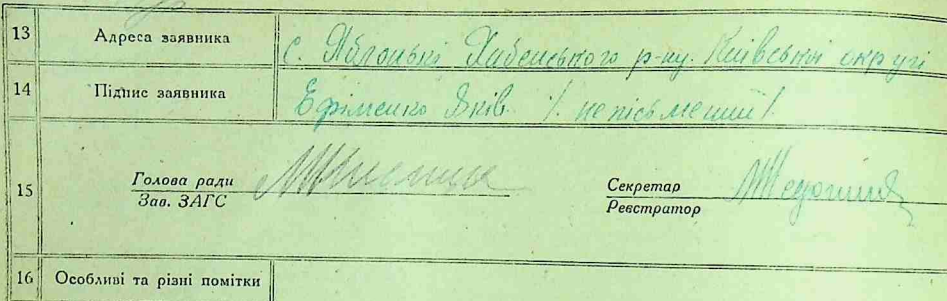 13 Адреса заявника с. Яблонькі Хабенського р-ну Київської округі
14 Підпис заявника Ефіменко Яків /. непісьмений /.
15 Голова ради Секретар
Зав. ЗАГС Реєстратор
16 Особливі та різні помітки